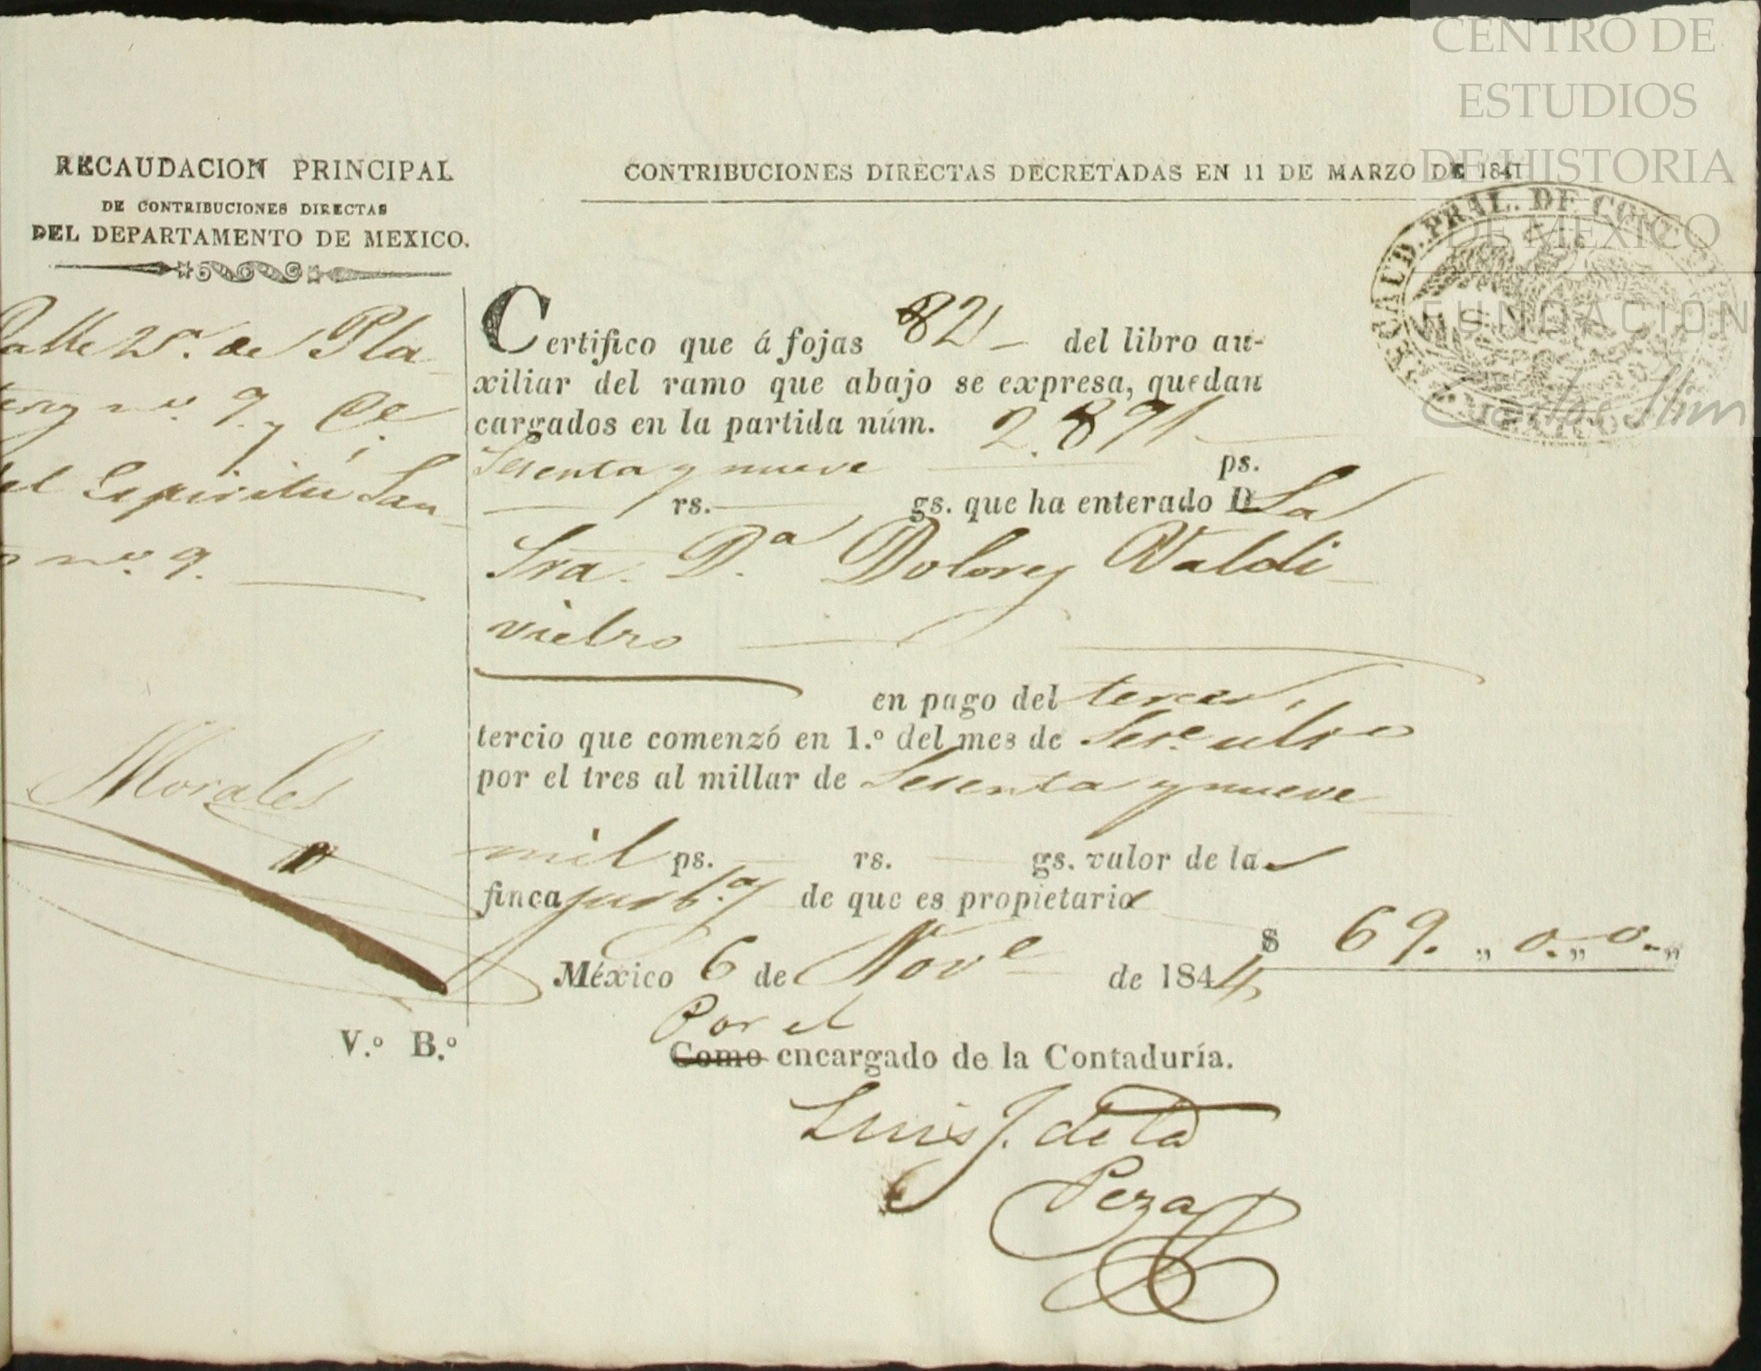 CENTRO DE
ESTUDIOS
DE HISTORIA
DE MÉXICO
FUNDACIÓN
Carlos Slim
RECAUDACION PRINCIPAL
DE CONTRIBUCIONES DIRECTAS
DEL DEPARTAMENTO DE MEXICO.
CONTRIBUCIONES DIRECTAS DECRETADAS EN 11 DE MARZO DE 1841
RECAUD. PRAL. DE CON
alle 2ª. de Pla
n.º 9. y Ce.
el Espiritu San
n.º 9.
Morales
V.º B.º
Certifico que á fojas 82 del libro au-
xiliar del ramo que abajo se expresa, quedan
cargados en la partida núm. 2.891
Sesenta y nueve ps.
rs. gs. que ha enterado D La
Sra. D.ª Dolores Valdi
vielso
en pago del tercer
tercio que comenzó en 1.º del mes de
por el tres al millar de Sesenta y nueve
mil ps. rs. gs. valor de las
finca de que es propietaria
$ 69. ,, 0. ,, 0. ,,
México 6 de Nov.e de 1844
Por el
Como encargado de la Contaduría.
Luis J. de la
Peza